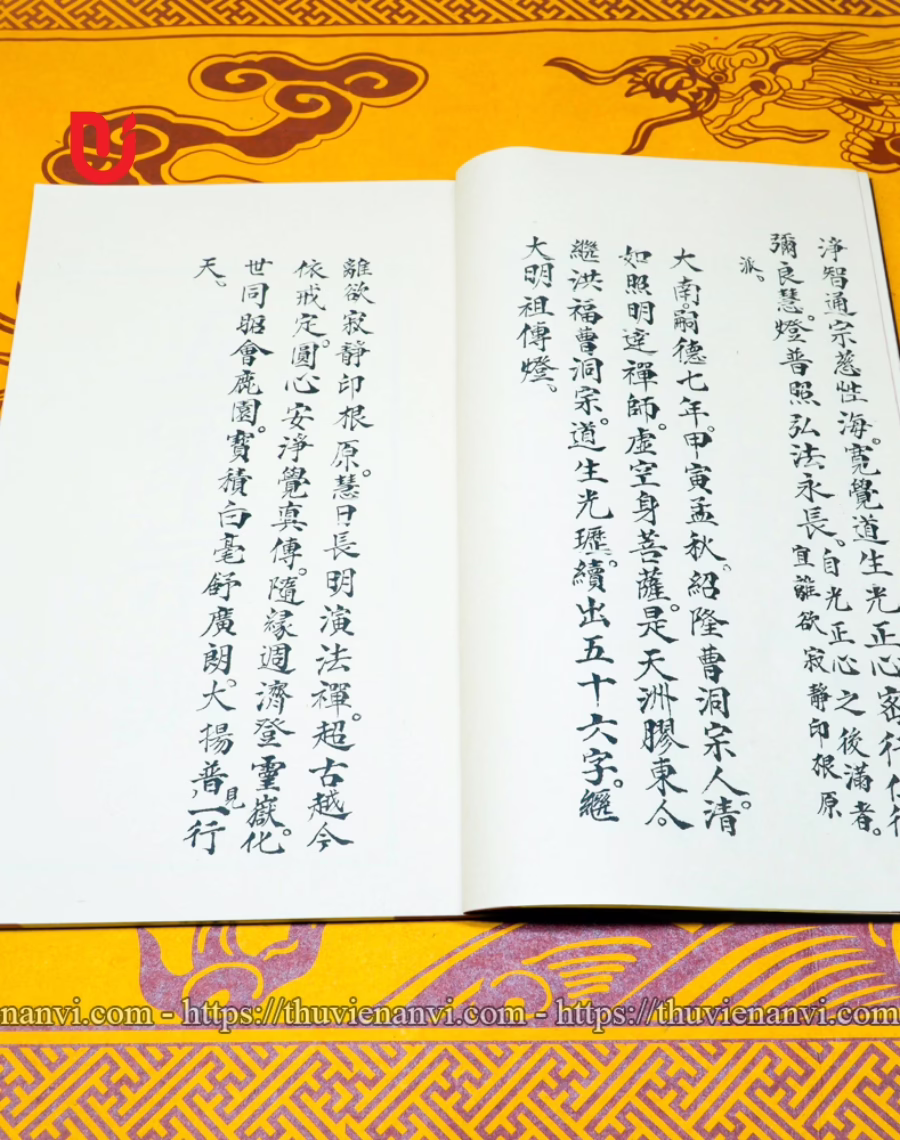 淨智通宗慈性海。寬覺道生光正心密行
彌良慧。燈普照弘法永長。
自光正心之後滿者。
宜離欲寂靜印根原
派。
大南。嗣德七年。甲寅孟秋。紹隆曹洞宗人清。
如照明達禪師。虛空身菩薩。是天洲膠東人。
繼洪福曹洞宗。道生光 續出五十六字。繼
大明祖傳燈。
離欲寂靜印根原。慧日長明演法禪。超古越今
依戒定。圓心安淨覺真傳。隨緣週濟登靈嶽。化
世同昭會鹿園。寶積白毫舒廣朗。大揚普見一行
天。
nanvi.com - https://thuvienanvi.com - https://thuvienanvi.com